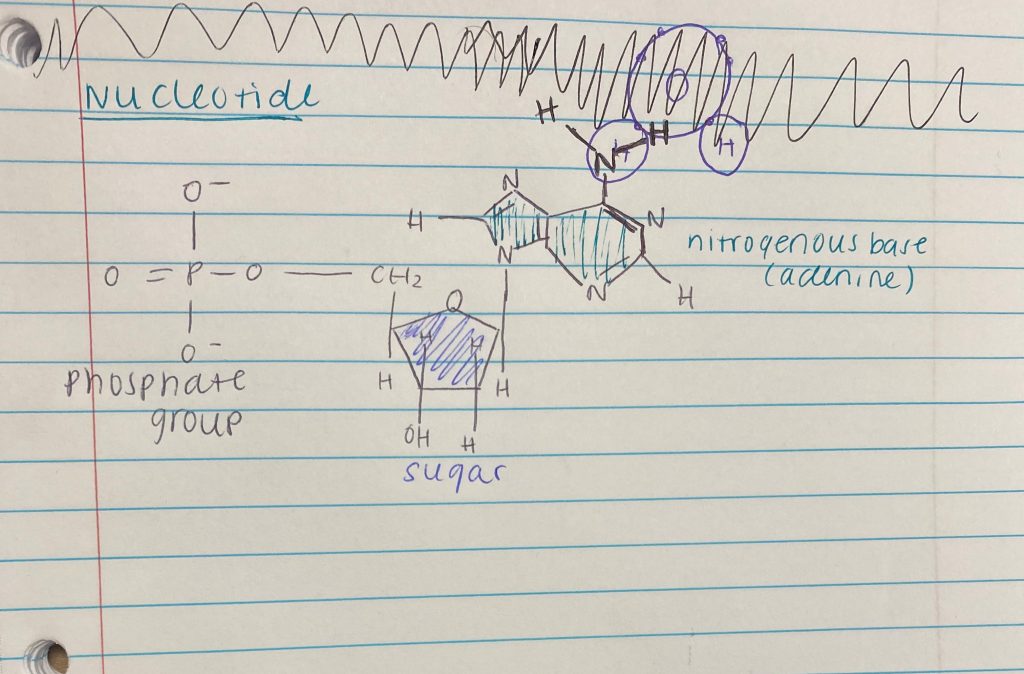 Nucleotide
O
H H
H
H
N
O⁻
N
H
N
nitrogenous base
(adenine)
N
N
H
O = P - O — CH2
O
O⁻
H H
H
H
phosphate
group
OH H
sugar